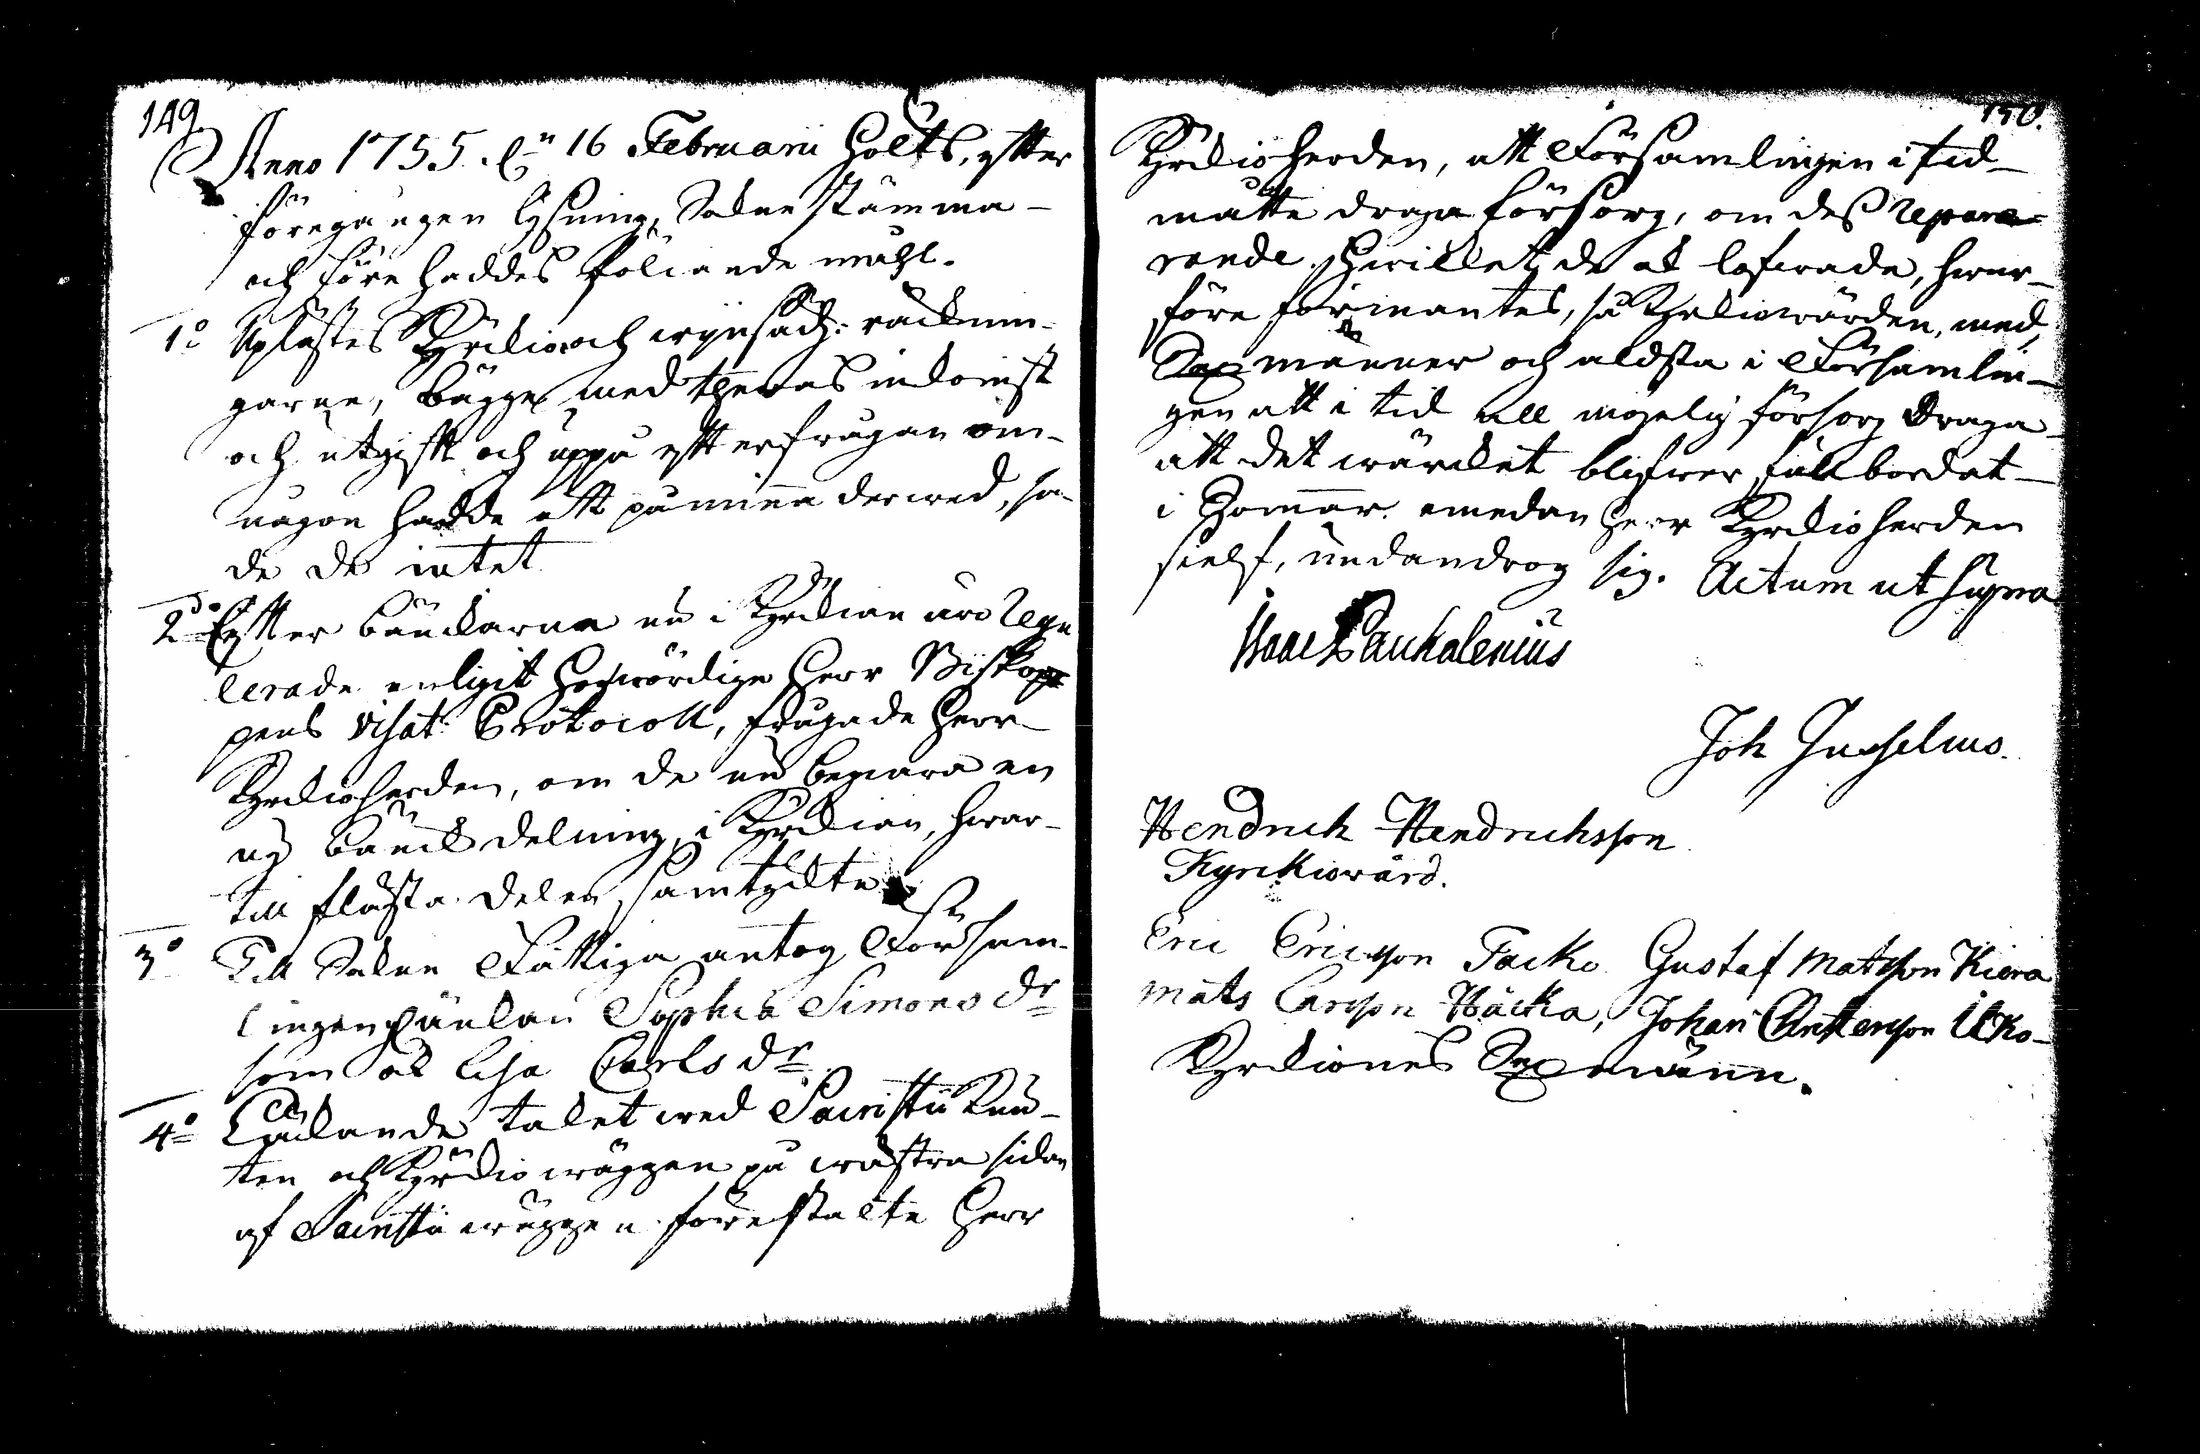 149
Anno 1755. d. 16 Februarii höltz, efter
föregången lysning, Sokne Stämma
och före haddes följande måhl.
1o Uplästes Kyrkio och wijnsäds räknin-
garne, bägge med theras inkomst
och utgift och uppå efterfrågan om
någon hadde att påminna derwed, sa-
de de intet.
2do Effter bänckarna nu i Kyrkian äro regu
lerade enligit Högwördige Herr Biskop
pens visit: Protocoll, frågade Herr
Kyrkioherden, om de nu begiära en
ny bänck delning i Kyrkian, hwar-
till flästa delen samtyckte.
3o Till Sokne Fattiga antog Försam-
lingen Sophia Simons dr
som ock Lisa Carls dr
4o Läckande taket wed Sacristii Knu-
ten och Kyrkio wäggen på wästra sidan
af Sacristii wäggen förestälte Herr
150.
Kyrkioherden, att Församlingen i tid
måtte draga försorg, om dess repare-
rande. Hwilket de ock lofwade, hwar-
före förmantes, så Kyrkiowärden, med
Sex männer och äldsta i Församlin-
gen att i tid all möjelig försorg draga
att det wärcket blifwer fullbordat
i Sommar. emedan Herr Kyrkioherden
sielf, undandrog sig. Actum ut supra
Isaac Pauhalenius
Joh Gusselius.
Hendrich Hendrichsson
Kyrckiowärd.
Eric Ericsson Facko Gustaf Matsson Kiera
Mats Larsson Häcka, Johan Andersson Uko-
Kyrkiones Sexmänn.